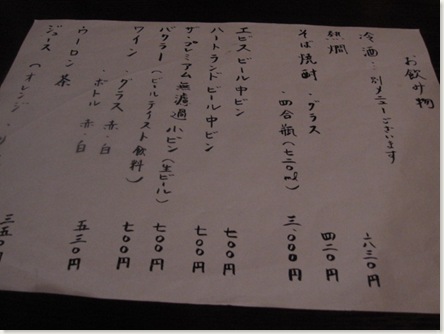 お飲み物
冷酒…別メニューございます
熱燗 八三〇円
そば焼酎 ・グラス 四二〇円
・四合瓶(七二〇ml) 三、〇〇〇円
エビスビール中ビン 七〇〇円
ハートランドビール中ビン 七〇〇円
ザ・プレミアム無濾過小ビン(生ビール) 七〇〇円
バクラー(ビールテイスト飲料) 七〇〇円
ワイン ・グラス 赤白 五三〇円
・ボトル 赤白
・ウーロン茶 三五〇円
ジュース(オレンジ